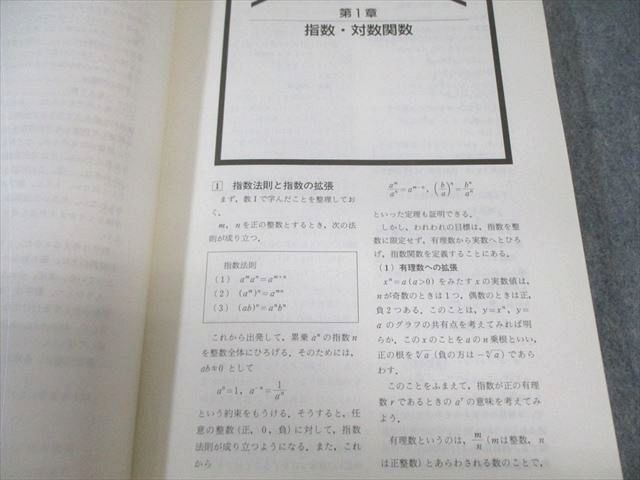 第1章
指数・対数関数
1 指数法則と指数の拡張
まず，数Ⅰで学んだことを整理してお
く．
m，nを正の整数とするとき，次の法
則が成り立つ．
指数法則
(1) aᵐaⁿ=aᵐ⁺ⁿ
(2) (aᵐ)ⁿ=aᵐⁿ
(3) (ab)ⁿ=aⁿbⁿ
これから出発して，累乗 aⁿ の指数 n
を整数全体にひろげる．そのためには，
ab≠0 として
a⁰=1，a⁻ⁿ=1/aⁿ
という約束をもうける．そうすると，任
意の整数（正，0，負）に対して，指数
法則が成り立つようになる．また，これ
から
aᵐ/aⁿ=aᵐ⁻ⁿ，(b/a)ⁿ=bⁿ/aⁿ
といった定理も証明できる．
しかし，われわれの目標は，指数を整
数に限定せず，有理数から実数へとひろ
げ，指数関数を定義することにある．
(1) 有理数への拡張
xⁿ=a (a>0) をみたす x の実数値は，
n が奇数のときは1つ，偶数のときは正，
負2つある．このことは，y=xⁿ，y=
a のグラフの共有点を考えてみれば明
らか．この x のことを a の n 乗根といい，
正の根を ⁿ√a（負の方は −ⁿ√a）であら
わす．
このことをふまえて，指数が正の有理
数 r であるときの aʳ の意味を考えてみ
よう．
有理数というのは，m/n（m は整数，n
は正整数）とあらわされる数のことで，